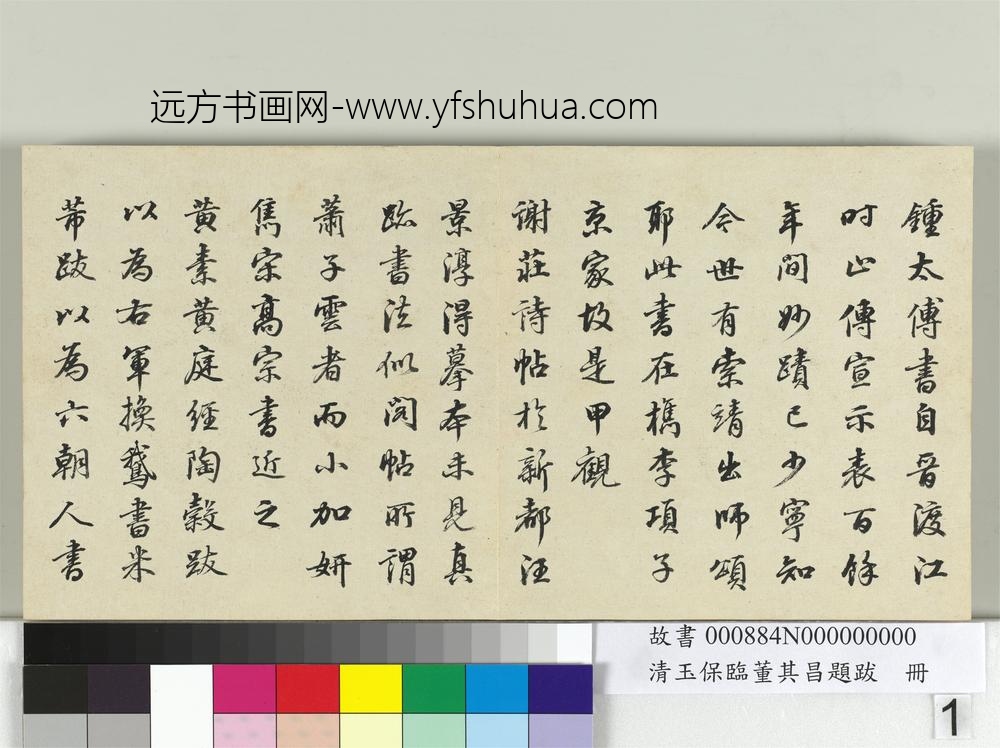 远方书画网-www.yfshuhua.com
鍾太傅書自晉渡江
时止傳宣示表百餘
年間妙蹟已少寧知
今世有索靖出師頌
耶此書在檇李項子
京家故是甲觀
謝莊詩帖於新都汪
景淳得摹本未見真
跡書法似閣帖所謂
蕭子雲者而小加妍
雋宋高宗書近之
黃素黃庭經陶穀跋
以為右軍換鵞書米
芾跋以為六朝人書
故書 000884N000000000
清玉保臨董其昌題跋 冊
1